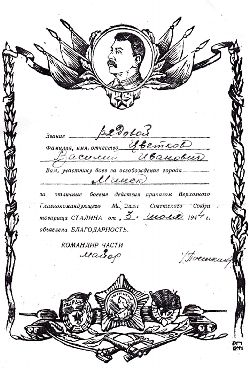 Звание рядовой
Фамилия, имя, отчество Цветков
Василий Иванович
Вам, участнику боев за освобождение города
Минск
за отличные боевые действия приказом Верховного
Главнокомандующего Маршала Советского Союза
товарища СТАЛИНА от 3 июля 1944 г.
объявлена БЛАГОДАРНОСТЬ.
КОМАНДИР ЧАСТИ
майор